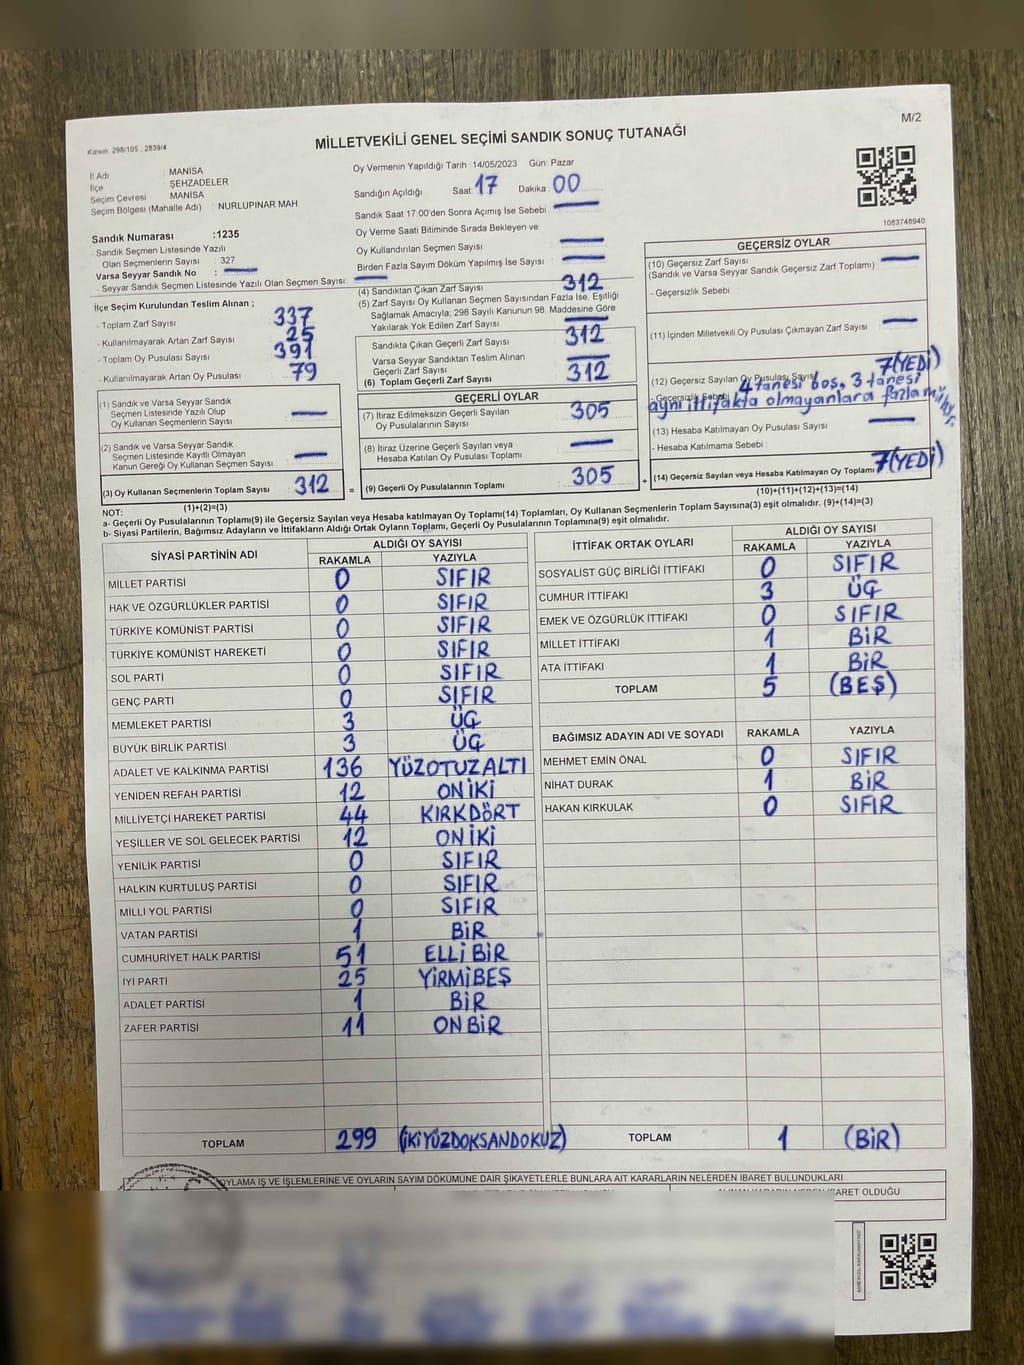 M/2
Kanun: 298/105 , 2839/4
MİLLETVEKİLİ GENEL SEÇİMİ SANDIK SONUÇ TUTANAĞI
İl Adı : MANİSA
İlçe : ŞEHZADELER
Seçim Çevresi : MANİSA
Seçim Bölgesi (Mahalle Adı) : NURLUPINAR MAH
Sandık Numarası :1235
- Sandık Seçmen Listesinde Yazılı
Olan Seçmenlerin Sayısı : 327
Varsa Seyyar Sandık No :
- Seyyar Sandık Seçmen Listesinde Yazılı Olan Seçmen Sayısı:
İlçe Seçim Kurulundan Teslim Alınan ;
- Toplam Zarf Sayısı 337
- Kullanılmayarak Artan Zarf Sayısı 25
- Toplam Oy Pusulası Sayısı 391
- Kullanılmayarak Artan Oy Pusulası 79
(1) Sandık ve Varsa Seyyar Sandık
Seçmen Listesinde Yazılı Olup
Oy Kullanan Seçmenlerin Sayısı
(2) Sandık ve Varsa Seyyar Sandık
Seçmen Listesinde Kayıtlı Olmayan
Kanun Gereği Oy Kullanan Seçmen Sayısı
(3) Oy Kullanan Seçmenlerin Toplam Sayısı 312 =
(1)+(2)=(3)
Oy Vermenin Yapıldığı Tarih : 14/05/2023 Gün: Pazar
Sandığın Açıldığı Saat: 17 Dakika: 00
Sandık Saat 17:00'den Sonra Açımış İse Sebebi :
Oy Verme Saati Bitiminde Sırada Bekleyen ve
Oy Kullandırılan Seçmen Sayısı
Birden Fazla Sayım Döküm Yapılmış İse Sayısı :
(4) Sandıktan Çıkan Zarf Sayısı 312
(5) Zarf Sayısı Oy Kullanan Seçmen Sayısından Fazla İse, Eşitliği
Sağlamak Amacıyla; 298 Sayılı Kanunun 98. Maddesine Göre
Yakılarak Yok Edilen Zarf Sayısı
Sandıkta Çıkan Geçerli Zarf Sayısı 312
Varsa Seyyar Sandıktan Teslim Alınan
Geçerli Zarf Sayısı
(6) Toplam Geçerli Zarf Sayısı 312
GEÇERLİ OYLAR
(7) İtiraz Edilmeksizin Geçerli Sayılan
Oy Pusulalarının Sayısı 305
(8) İtiraz Üzerine Geçerli Sayılan veya
Hesaba Katılan Oy Pusulası Toplamı
(9) Geçerli Oy Pusulalarının Toplamı 305 +
1083748940
GEÇERSİZ OYLAR
(10) Geçersiz Zarf Sayısı
(Sandık ve Varsa Seyyar Sandık Geçersiz Zarf Toplamı) :
- Geçersizlik Sebebi :
(11) İçinden Milletvekili Oy Pusulası Çıkmayan Zarf Sayısı
(12) Geçersiz Sayılan Oy Pusulası Sayısı 7(YEDİ)
- Geçersizlik Sebebi 4 tanesi boş, 3 tanesi
aynı ittifakta olmayanlara fazla mühür.
(13) Hesaba Katılmayan Oy Pusulası Sayısı
- Hesaba Katılmama Sebebi :
(14) Geçersiz Sayılan veya Hesaba Katılmayan Oy Toplamı 7(YEDİ)
(10)+(11)+(12)+(13)=(14)
NOT:
a- Geçerli Oy Pusulalarının Toplamı(9) ile Geçersiz Sayılan veya Hesaba katılmayan Oy Toplamı(14) Toplamları, Oy Kullanan Seçmenlerin Toplam Sayısına(3) eşit olmalıdır. (9)+(14)=(3)
b- Siyasi Partilerin, Bağımsız Adayların ve İttifakların Aldığı Ortak Oyların Toplamı, Geçerli Oy Pusulalarının Toplamına(9) eşit olmalıdır.
SİYASİ PARTİNİN ADI ALDIĞI OY SAYISI
RAKAMLA YAZIYLA
MİLLET PARTİSİ 0 SIFIR
HAK VE ÖZGÜRLÜKLER PARTİSİ 0 SIFIR
TÜRKİYE KOMÜNİST PARTİSİ 0 SIFIR
TÜRKİYE KOMÜNİST HAREKETİ 0 SIFIR
SOL PARTİ 0 SIFIR
GENÇ PARTİ 0 SIFIR
MEMLEKET PARTİSİ 3 ÜÇ
BÜYÜK BİRLİK PARTİSİ 3 ÜÇ
ADALET VE KALKINMA PARTİSİ 136 YÜZOTUZALTI
YENİDEN REFAH PARTİSİ 12 ONİKİ
MİLLİYETÇİ HAREKET PARTİSİ 44 KIRKDÖRT
YEŞİLLER VE SOL GELECEK PARTİSİ 12 ONİKİ
YENİLİK PARTİSİ 0 SIFIR
HALKIN KURTULUŞ PARTİSİ 0 SIFIR
MİLLİ YOL PARTİSİ 0 SIFIR
VATAN PARTİSİ 1 BİR
CUMHURİYET HALK PARTİSİ 51 ELLİ BİR
İYİ PARTİ 25 YİRMİBEŞ
ADALET PARTİSİ 1 BİR
ZAFER PARTİSİ 11 ON BİR
TOPLAM 299 (İKİYÜZDOKSANDOKUZ)
İTTİFAK ORTAK OYLARI ALDIĞI OY SAYISI
RAKAMLA YAZIYLA
SOSYALİST GÜÇ BİRLİĞİ İTTİFAKI 0 SIFIR
CUMHUR İTTİFAKI 3 ÜÇ
EMEK VE ÖZGÜRLÜK İTTİFAKI 0 SIFIR
MİLLET İTTİFAKI 1 BİR
ATA İTTİFAKI 1 BİR
TOPLAM 5 (BEŞ)
BAĞIMSIZ ADAYIN ADI VE SOYADI RAKAMLA YAZIYLA
MEHMET EMİN ÖNAL 0 SIFIR
NİHAT DURAK 1 BİR
HAKAN KIRKULAK 0 SIFIR
TOPLAM 1 (BİR)
OYLAMA İŞ VE İŞLEMLERİNE VE OYLARIN SAYIM DÖKÜMÜNE DAİR ŞİKAYETLERLE BUNLARA AİT KARARLARIN NELERDEN İBARET BULUNDUKLARI
ALINAN KARARIN NEDEN İBARET OLDUĞU